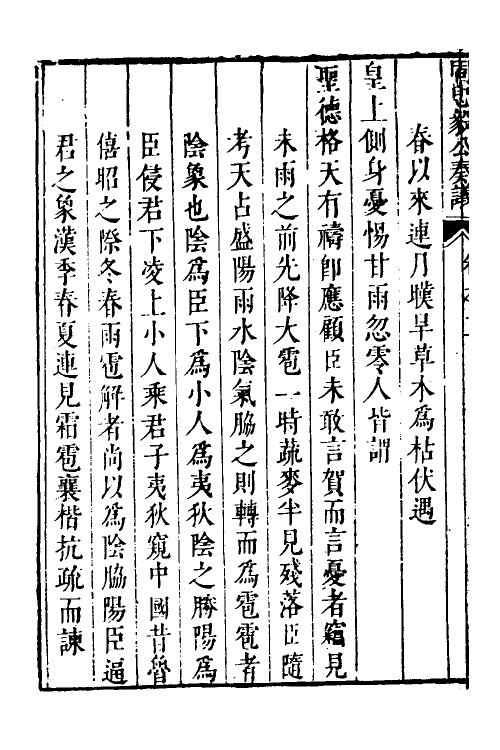 周忠毅公奏議
春以來連月暵旱草木為枯伏遇
皇上側身憂惕甘雨忽零人皆謂
聖德格天有禱卽應顧臣未敢言賀而言憂者竊見
未雨之前先降大雹一時蔬麥半見殘落臣隨
考天占盛陽雨水陰氣脇之則轉而為雹雹者
陰象也陰爲臣下爲小人爲夷狄陰之勝陽爲
臣侵君下凌上小人乘君子夷狄窺中國昔魯
僖昭之際冬春雨雹解者尚以爲陰脇陽臣逼
君之象漢季春夏連見霜雹襄楷抗疏而諫